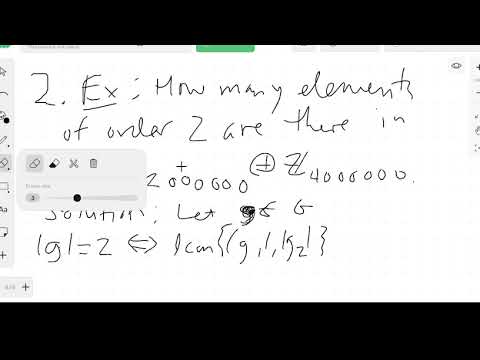 2. Ex: How many elements
of order 2 are there in
2000000 ⊕ ℤ4000000.
Solution: Let g ∈ G
|g|=2 ⇔ lcm{|g1|,|g2|}